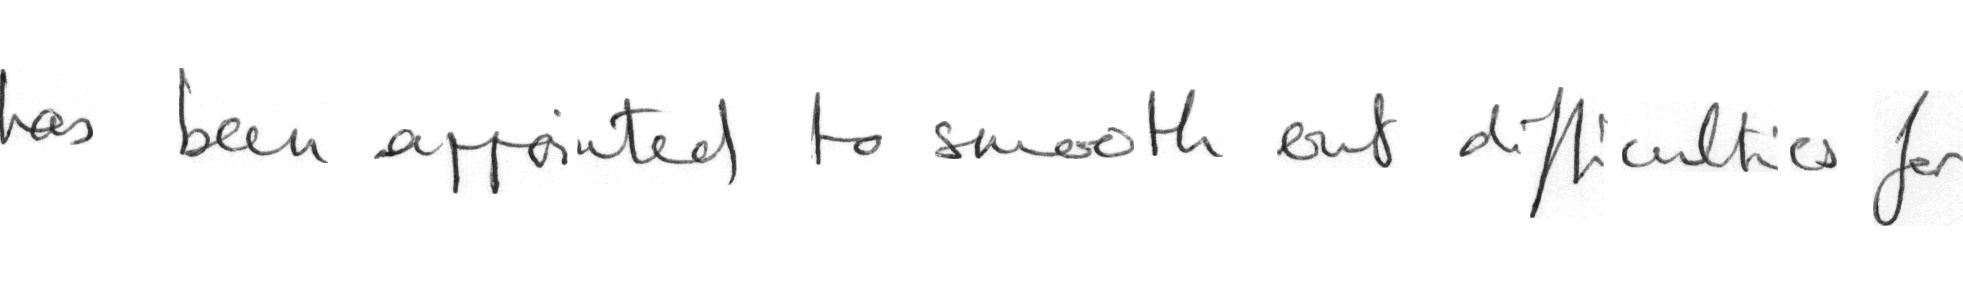 has been appointed to smooth out difficulties for